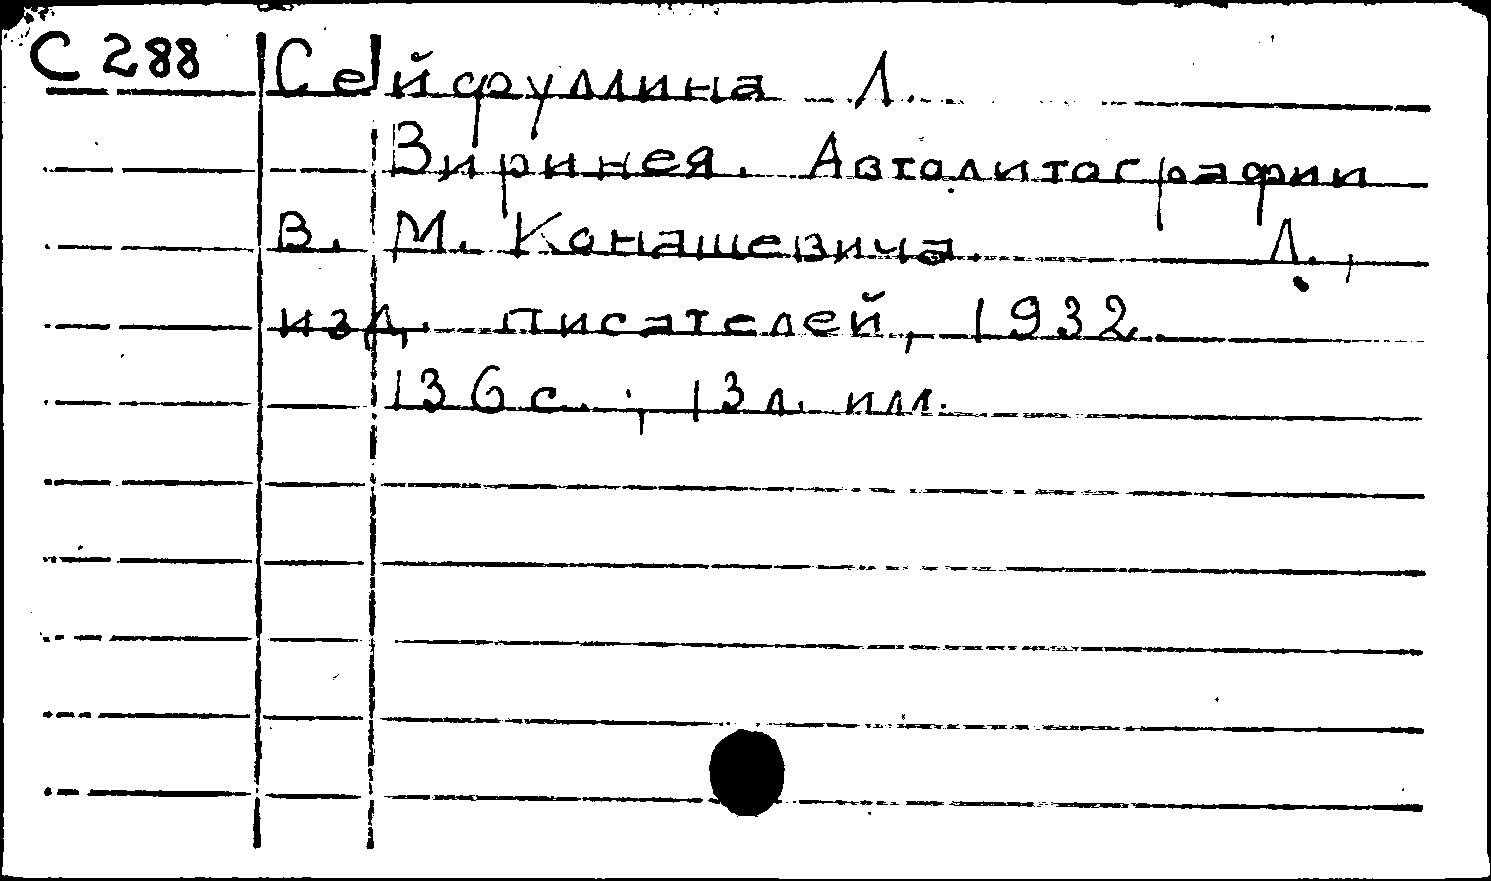 С 288 Сейфуллина Л.
Виринея. Автолитографии
В. М. Конашевича. Л.,
изд. писателей, 1932.
136 с.; 13 л. ил.